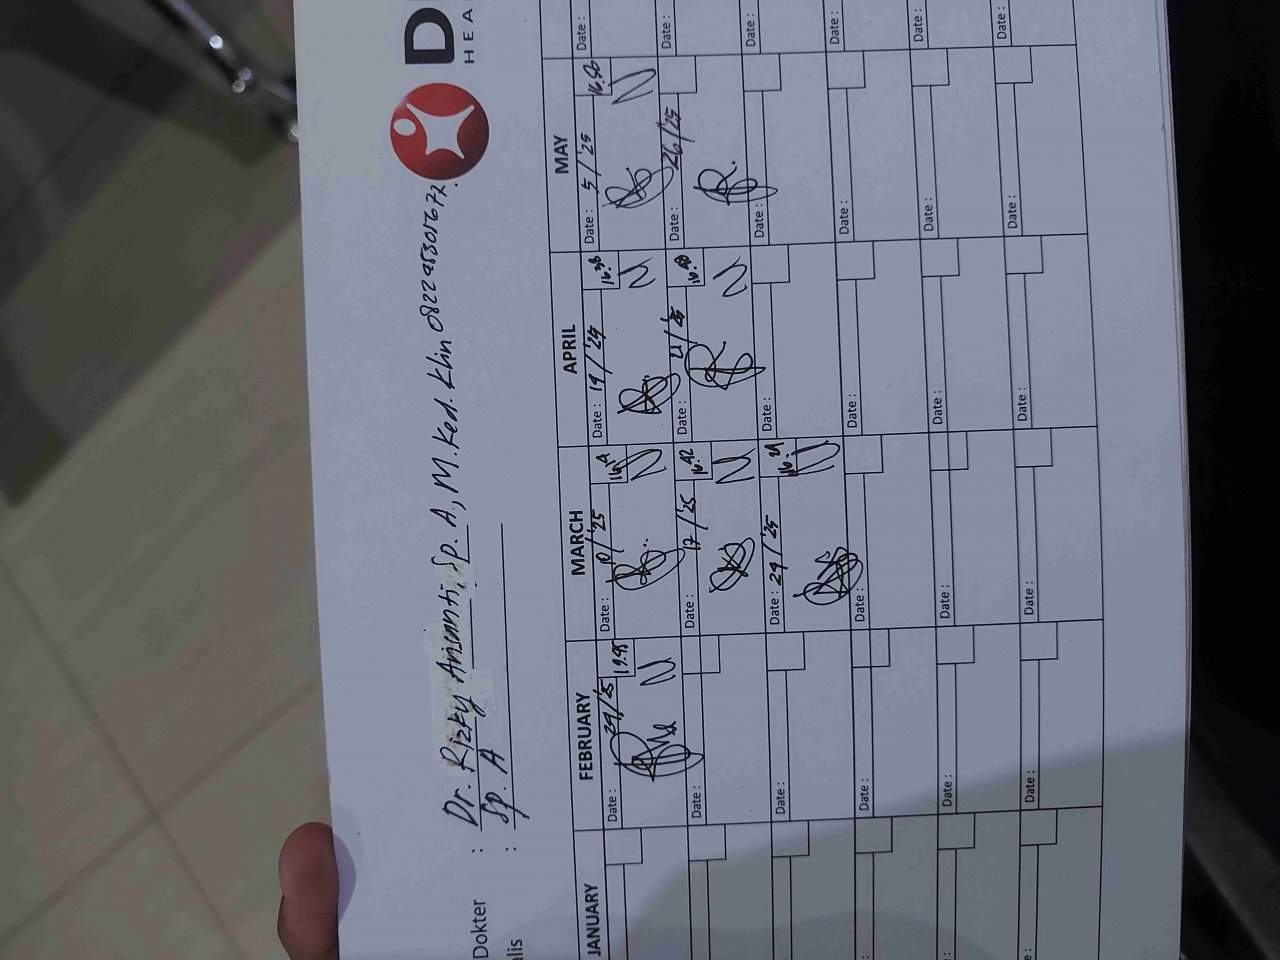 D
HEA
Dokter : Dr. Rizky Arisanti, Sp. A, M. Ked. Klin 082295301672.
alis : Sp. A
JANUARY FEBRUARY MARCH APRIL MAY
Date : 24/'25 19.45 Date : 10/'25 Date : 14/'25 16.36 Date : 5/'25 16.56 Date :
N N N N
Date : Date : 17/'25 16.42 Date : 21/'25 16.40 Date : 26/25 Date :
N N
Date : Date : 24/'25 16.21 Date : Date : Date :
N
Date : Date : Date : Date : Date :
Date : Date : Date : Date : Date :
Date : Date : Date : Date : Date : Date :